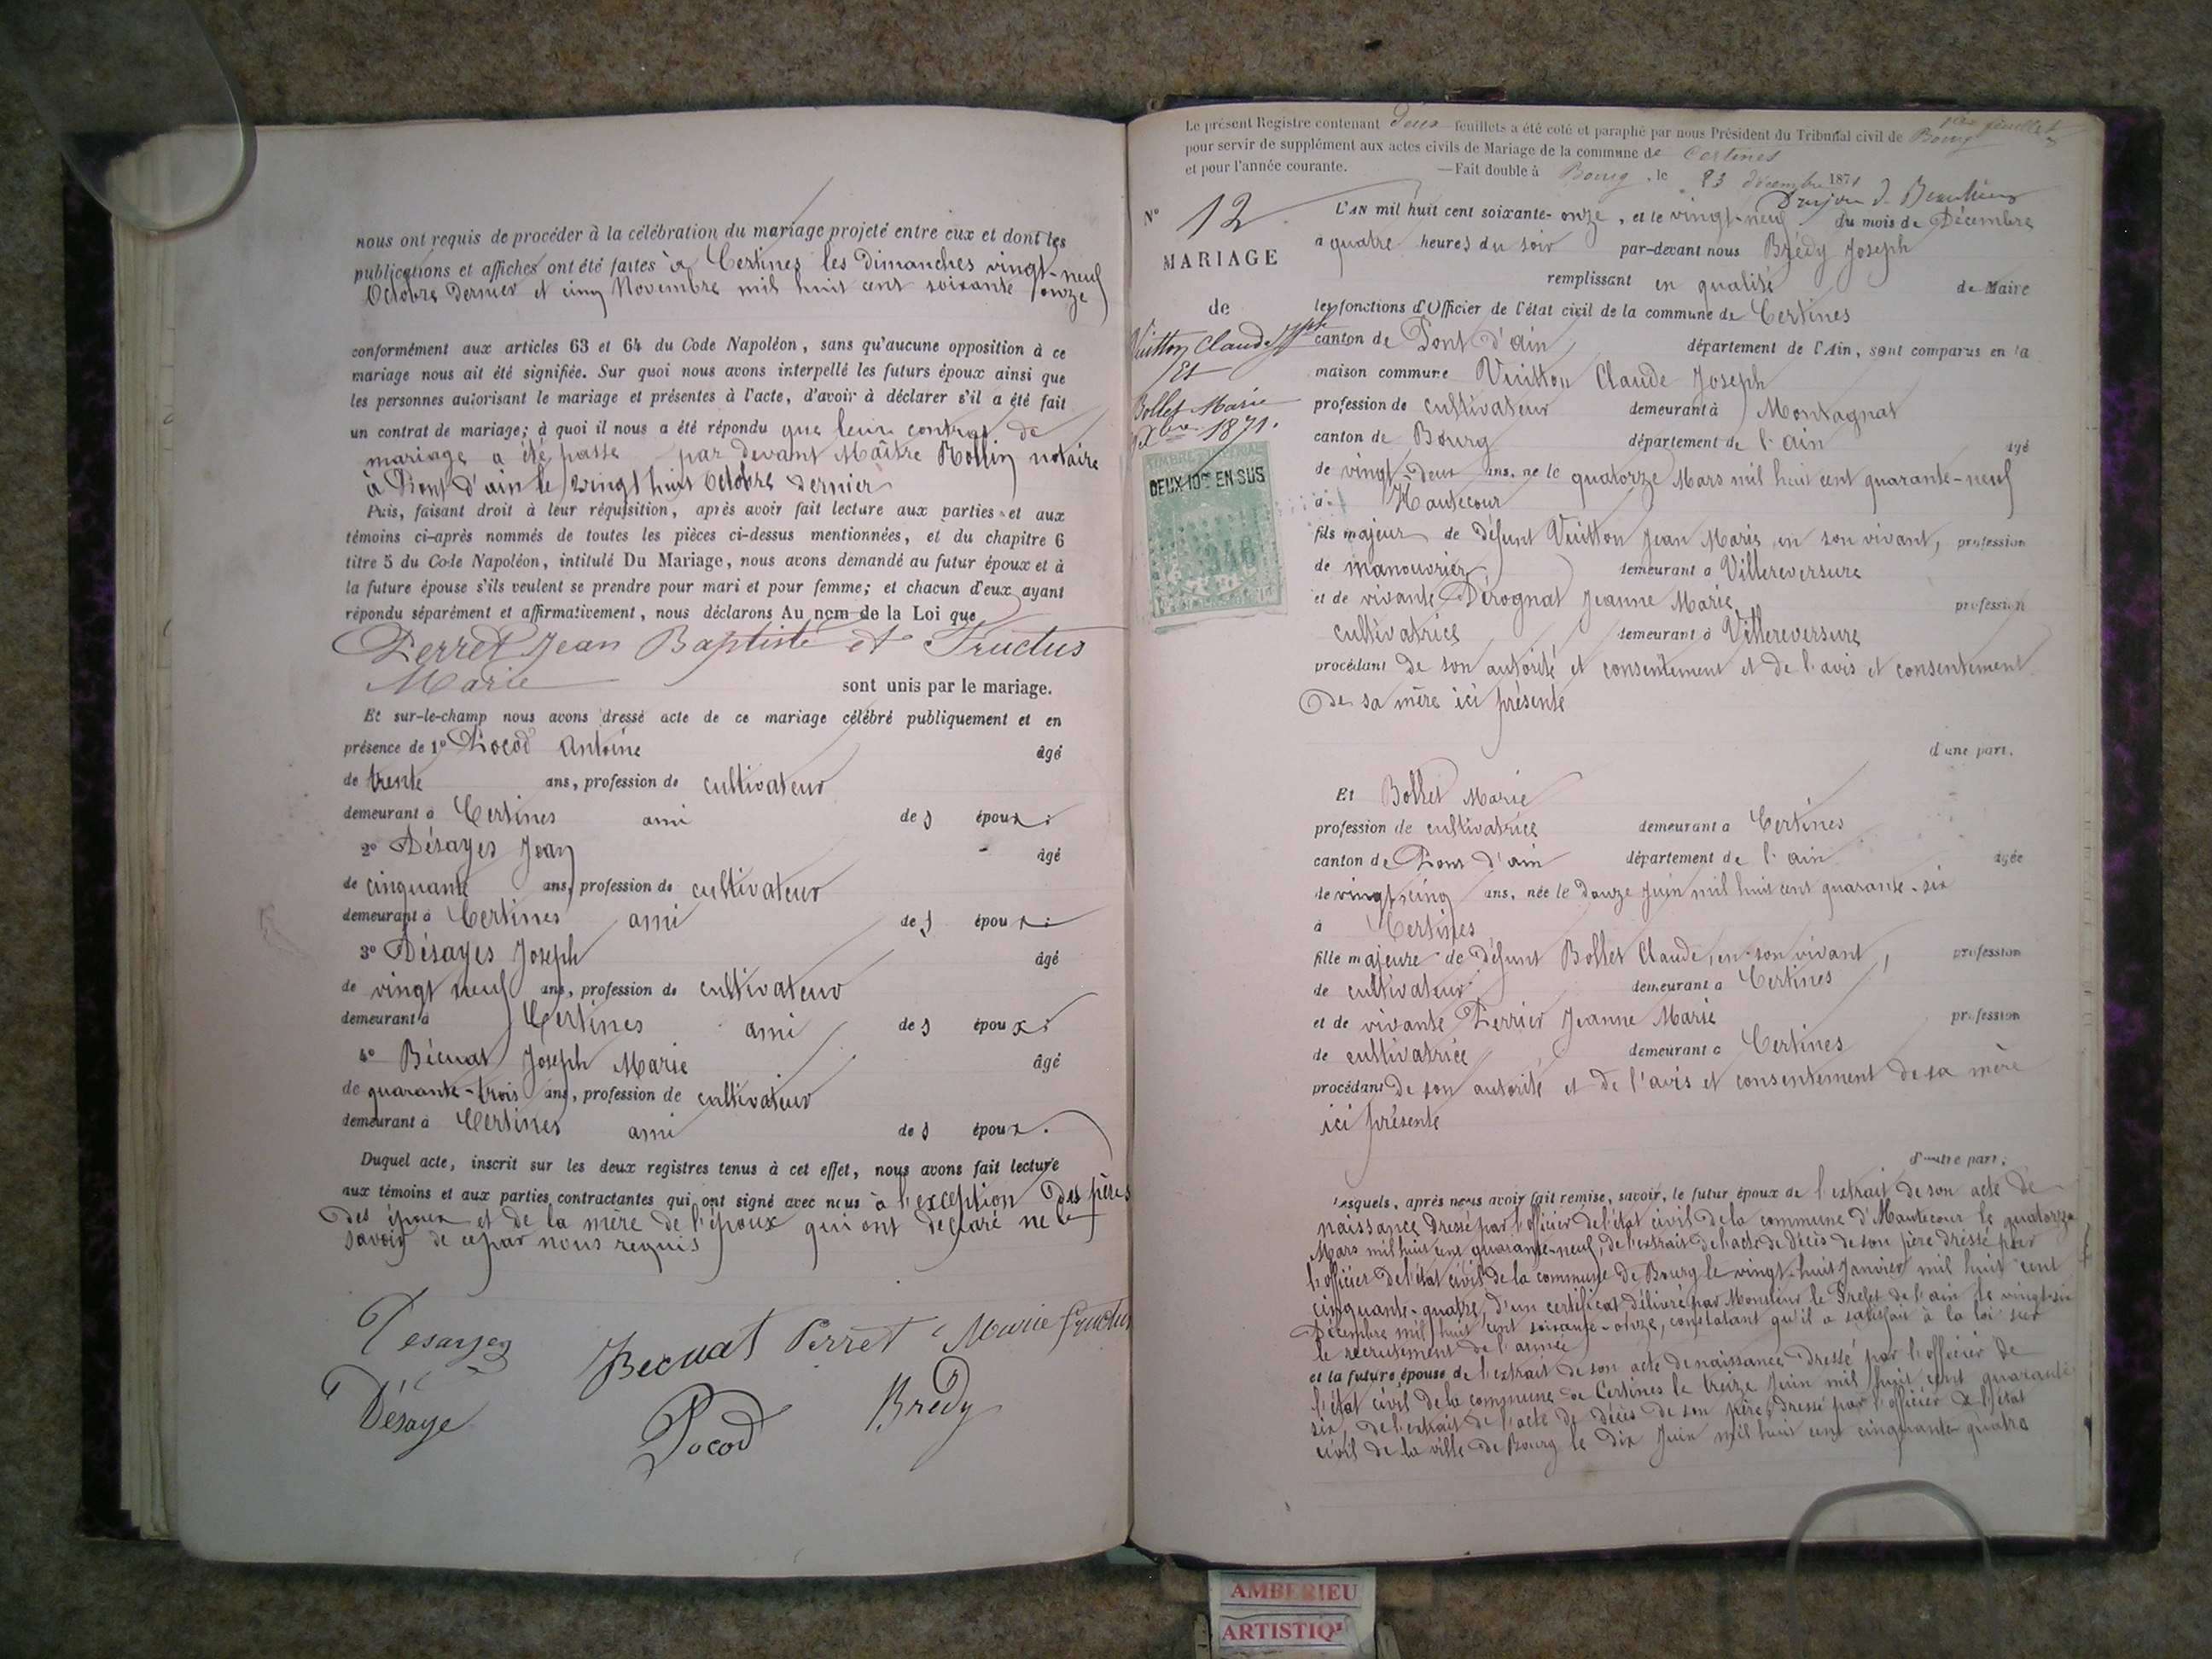 nous ont requis de procéder à la célébration du mariage projeté entre eux et dont les
publications et affiches ont été faites à Certines les Dimanches vingt-neuf
Octobre Dernier et cinq Novembre mil huit cent soixante onze
conformément aux articles 63 et 64 du Code Napoléon, sans qu'aucune opposition à ce
mariage nous ait été signifiée. Sur quoi nous avons interpellé les futurs époux ainsi que
les personnes autorisant le mariage et présentes à l'acte, d'avoir à déclarer s'il a été fait
un contrat de mariage; à quoi il nous a été répondu que leur contrat de
mariage a été passé par devant Maître Rollin notaire
à Pont d'ain le vingt huit Octobre dernier
Puis, faisant droit à leur réquisition, après avoir fait lecture aux parties et aux
témoins ci-après nommés de toutes les pièces ci-dessus mentionnées, et du chapitre 6
titre 5 du Code Napoléon, intitulé Du Mariage, nous avons demandé au futur époux et à
la future épouse s'ils veulent se prendre pour mari et pour femme; et chacun d'eux ayant
répondu séparément et affirmativement, nous déclarons Au nom de la Loi que
Perret Jean Baptiste et Fructus
Marie sont unis par le mariage.
Et sur-le-champ nous avons dressé acte de ce mariage célébré publiquement et en
présence de 1º Pocod Antoine âgé
de trente ans, profession de cultivateur
demeurant à Certines ami des époux;
2º Désayes Jean âgé
de cinquante ans, profession de cultivateur
demeurant à Certines ami des époux;
3º Désayes Joseph âgé
de vingt neuf ans, profession de cultivateur
demeurant à Certines ami des époux;
4º Bécuat Joseph Marie âgé
de quarante-trois ans, profession de cultivateur
demeurant à Certines ami des époux.
Duquel acte, inscrit sur les deux registres tenus à cet effet, nous avons fait lecture
aux témoins et aux parties contractantes qui ont signé avec nous à l'exception des pères
des époux et de la mère de l'époux qui ont déclaré ne le
savoir de ce par nous requis
Desayes Becuat Perret Marie Fructus
Désaye Pocod Bredy
Le présent Registre contenant deux feuillets a été coté et paraphé par nous Président du Tribunal civil de Bourg
pour servir de supplément aux actes civils de Mariage de la commune de Certines
et pour l'année courante. —Fait double à Bourg, le 23 décembre 1871
Nº 12
MARIAGE
de
Vuitton Claude Jph
Et
Bollet Marie
Xbre 1871.
DEUX 10es EN SUS
L'AN mil huit cent soixante-onze, et le vingt-neuf du mois de Décembre
à quatre heures du soir par-devant nous Brédy Joseph
remplissant en qualité de Maire
les fonctions d'Officier de l'état civil de la commune de Certines
canton de Pont d'ain département de l'Ain, sont comparus en la
maison commune Vuitton Claude Joseph
profession de cultivateur demeurant à Montagnat
canton de Bourg département de l'ain âgé
de vingt-deux ans, né le quatorze Mars mil huit cent quarante-neuf
à Hautecour
fils majeur de défunt Vuitton Jean Marie en son vivant, profession
de manouvrier demeurant à Villereversure
et de vivante Dérognat Jeanne Marie profession
cultivatrice demeurant à Villereversure
procédant de son autorité et consentement et de l'avis et consentement
De sa mère ici présente
d'une part.
Et Bollet Marie
profession de cultivatrice demeurant à Certines
canton de Pont d'ain département de l'ain âgée
de vingt-cinq ans, née le douze Juin mil huit cent quarante-six
à Certines
fille majeure de défunt Bollet Claude, en son vivant, profession
de cultivateur demeurant à Certines
et de vivante Perrier Jeanne Marie profession
de cultivatrice demeurant à Certines
procédant de son autorité et de l'avis et consentement de sa mère
ici présente
d'autre part.
Lesquels, après nous avoir fait remise, savoir, le futur époux de l'extrait de son acte de
naissance dressé par l'officier de l'état civil de la commune d'Hautecour le quatorze
Mars mil huit cent quarante-neuf, de l'extrait de l'acte de décès de son père dressé par
l'officier de l'état civil de la commune de Bourg le vingt-huit Janvier mil huit cent
cinquante-quatre, d'un certificat délivré par Monsieur le Préfet de l'ain le vingt-six
Décembre mil huit cent soixante-onze, constatant qu'il a satisfait à la loi sur
le recrutement de l'armée
et la future épouse de l'extrait de son acte de naissance dressé par l'officier de
l'état civil de la commune de Certines le treize Juin mil huit cent quarante
six, de l'extrait de l'acte de décès de son père, dressé par l'officier de l'état
civil de la ville de Bourg le dix Juin mil huit cent cinquante quatre
AMBERIEU
ARTISTIQ